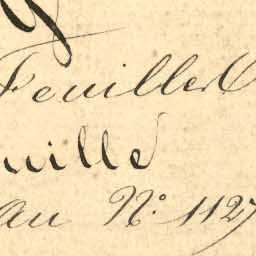 Feuillet
uille
au N° 1127